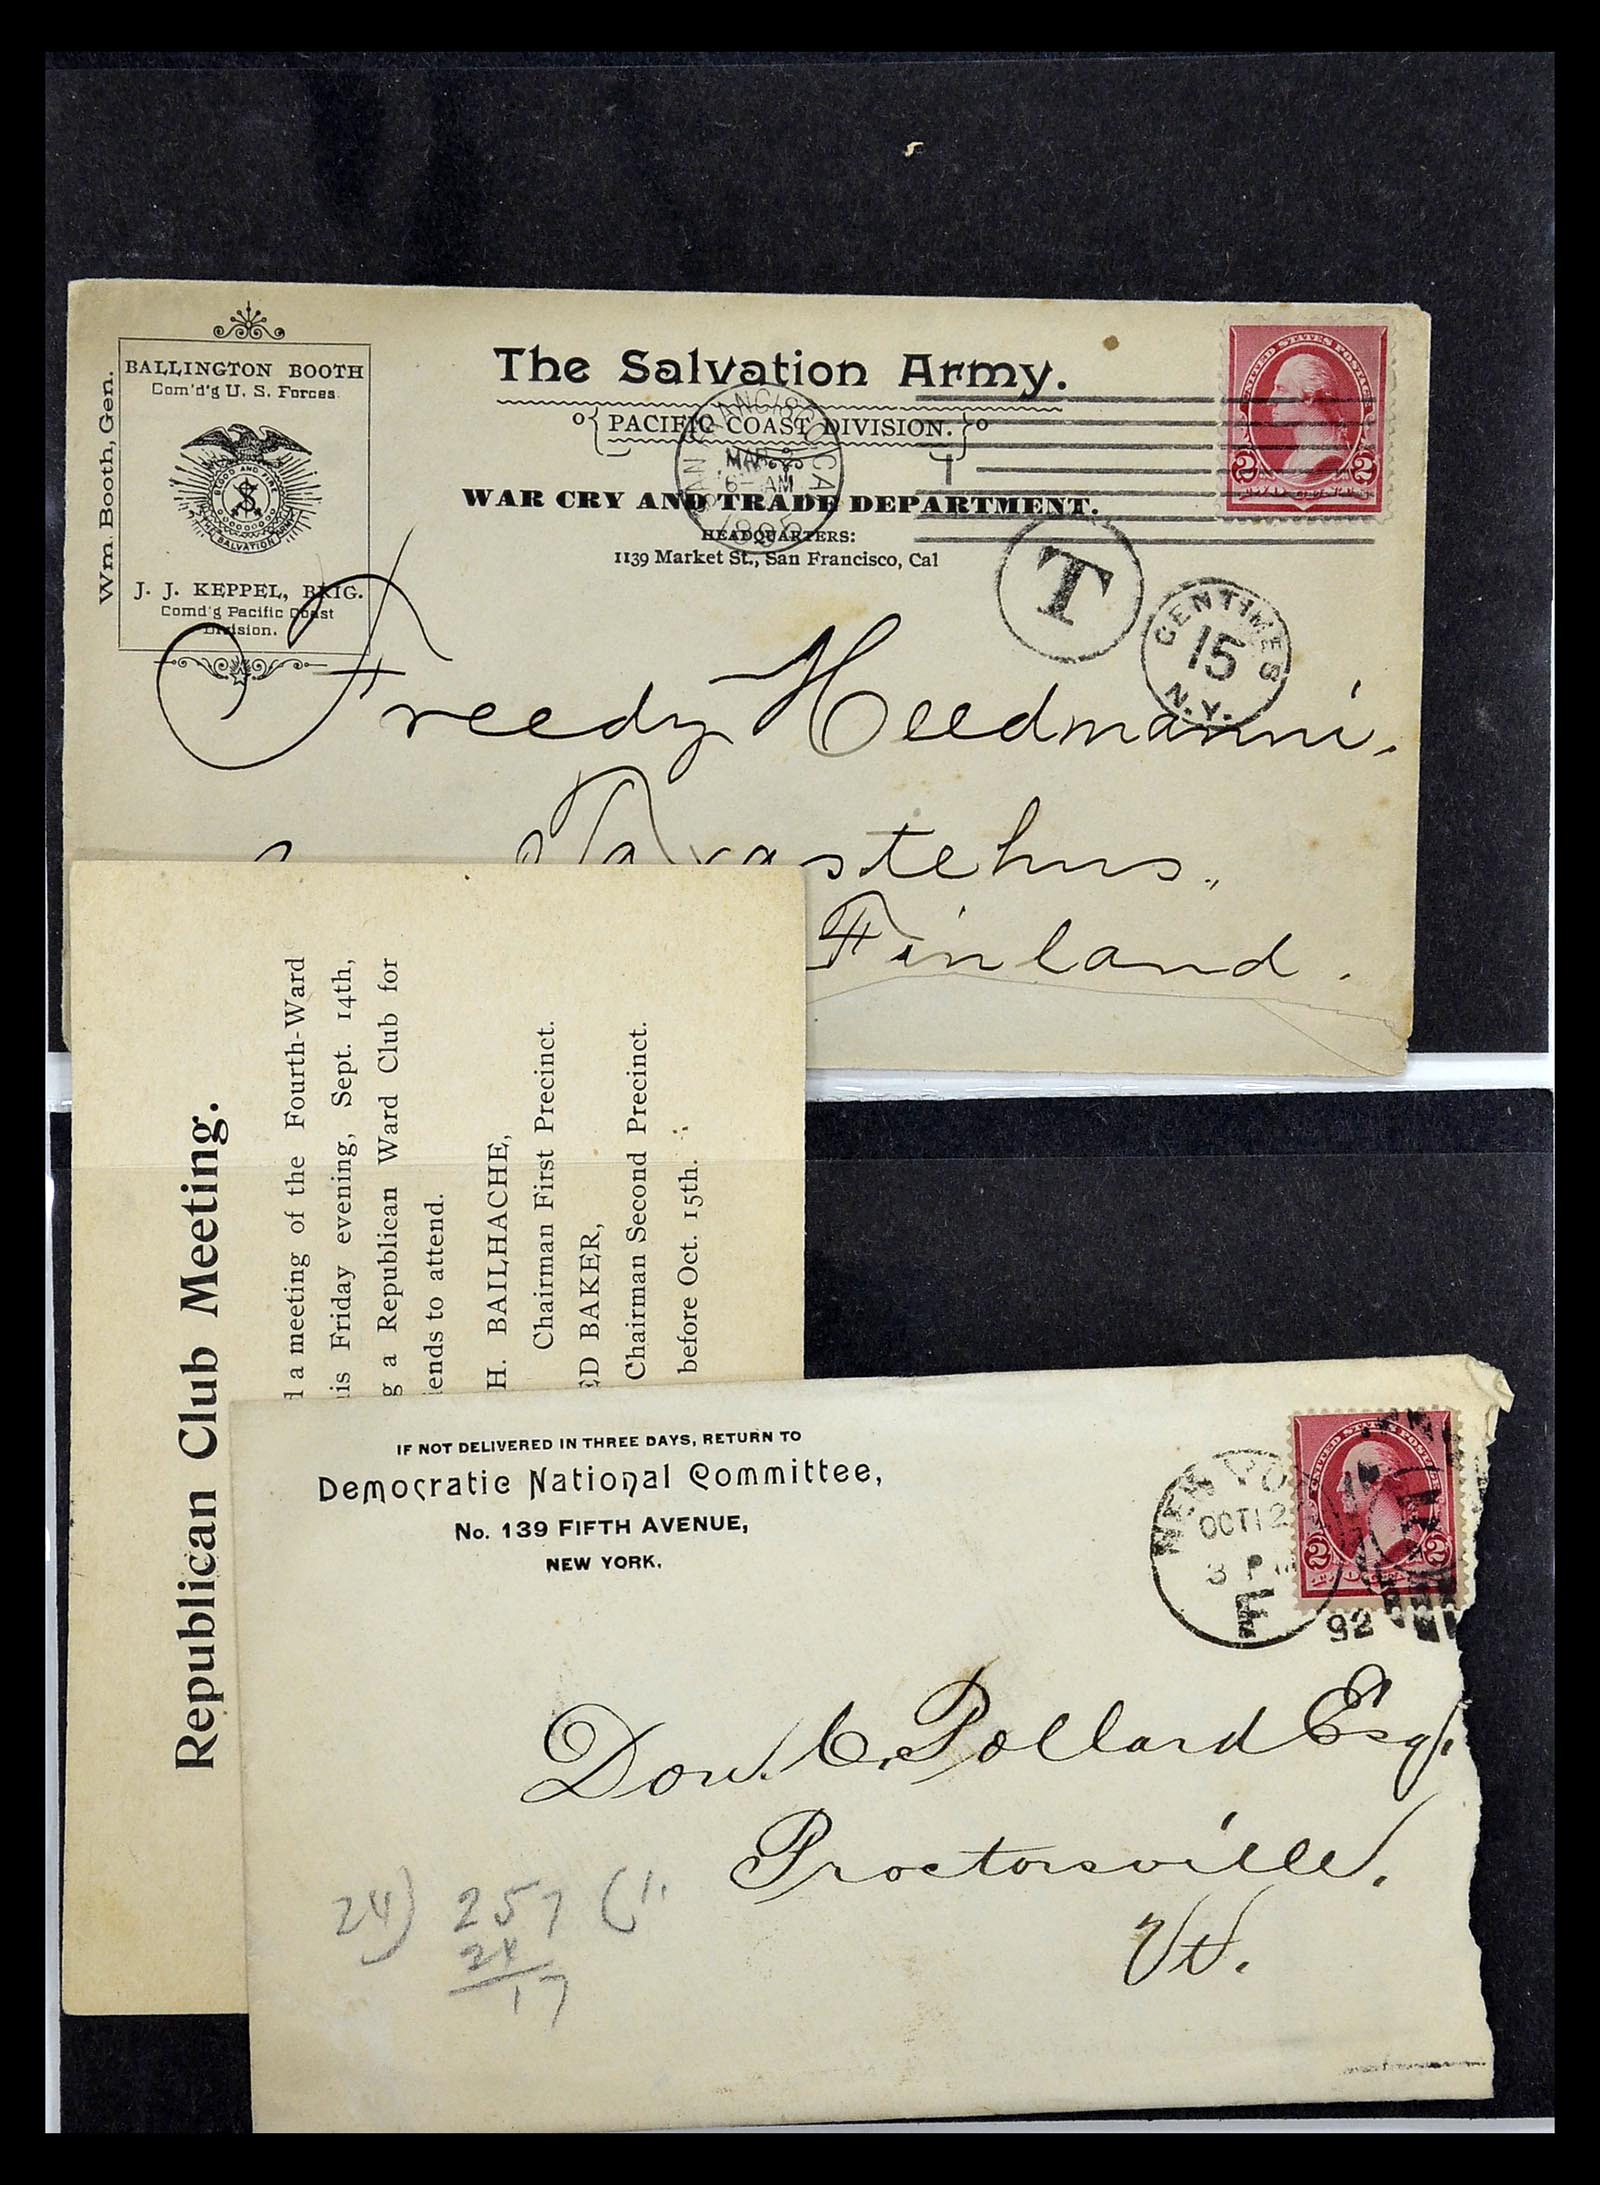 Wm. Booth, Gen.
BALLINGTON BOOTH
Com'd'g U. S. Forces
BLOOD AND FIRE
SALVATION
J. J. KEPPEL, BRIG.
Comd'g Pacific Coast
Division.
The Salvation Army.
PACIFIC COAST DIVISION.
WAR CRY AND TRADE DEPARTMENT.
HEADQUARTERS:
1139 Market St., San Francisco, Cal
SAN FRANCISCO CAL
MAR
6- AM
UNITED STATES POSTAGE
2 2
T
CENTIMES
15
N.Y.
Freedy Heedmanni.
Tavastehus.
Finland.
Republican Club Meeting.
d a meeting of the Fourth-Ward
is Friday evening, Sept. 14th,
g a Republican Ward Club for
ends to attend.
H. BAILHACHE,
Chairman First Precinct.
ED BAKER,
Chairman Second Precinct.
before Oct. 15th.
IF NOT DELIVERED IN THREE DAYS, RETURN TO
Democratic National Committee,
No. 139 FIFTH AVENUE,
NEW YORK.
NEW YO
OCT 12
3 P M
F
92
UNITED STATES POSTAGE
2 2
Don. C. Pollard Esq.
Proctorsville.
Vt.
24) 257 (1.
24
17